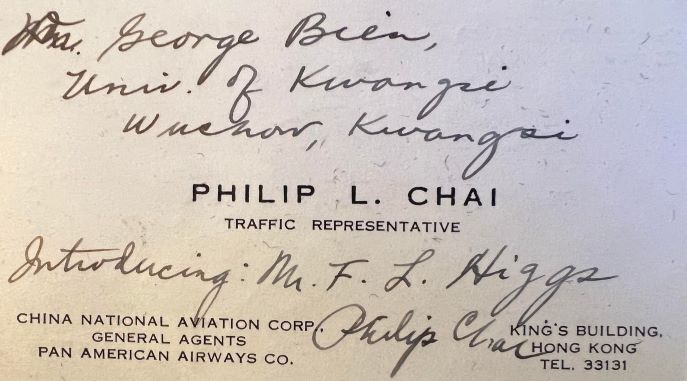 Wm. George Bien,
Univ. of Kwangsi
Wuchow, Kwangsi
PHILIP L. CHAI
TRAFFIC REPRESENTATIVE
Introducing: Mr. F. L. Higgs
Philip Chai
CHINA NATIONAL AVIATION CORP.
GENERAL AGENTS
PAN AMERICAN AIRWAYS CO.
KING'S BUILDING,
HONG KONG
TEL. 33131